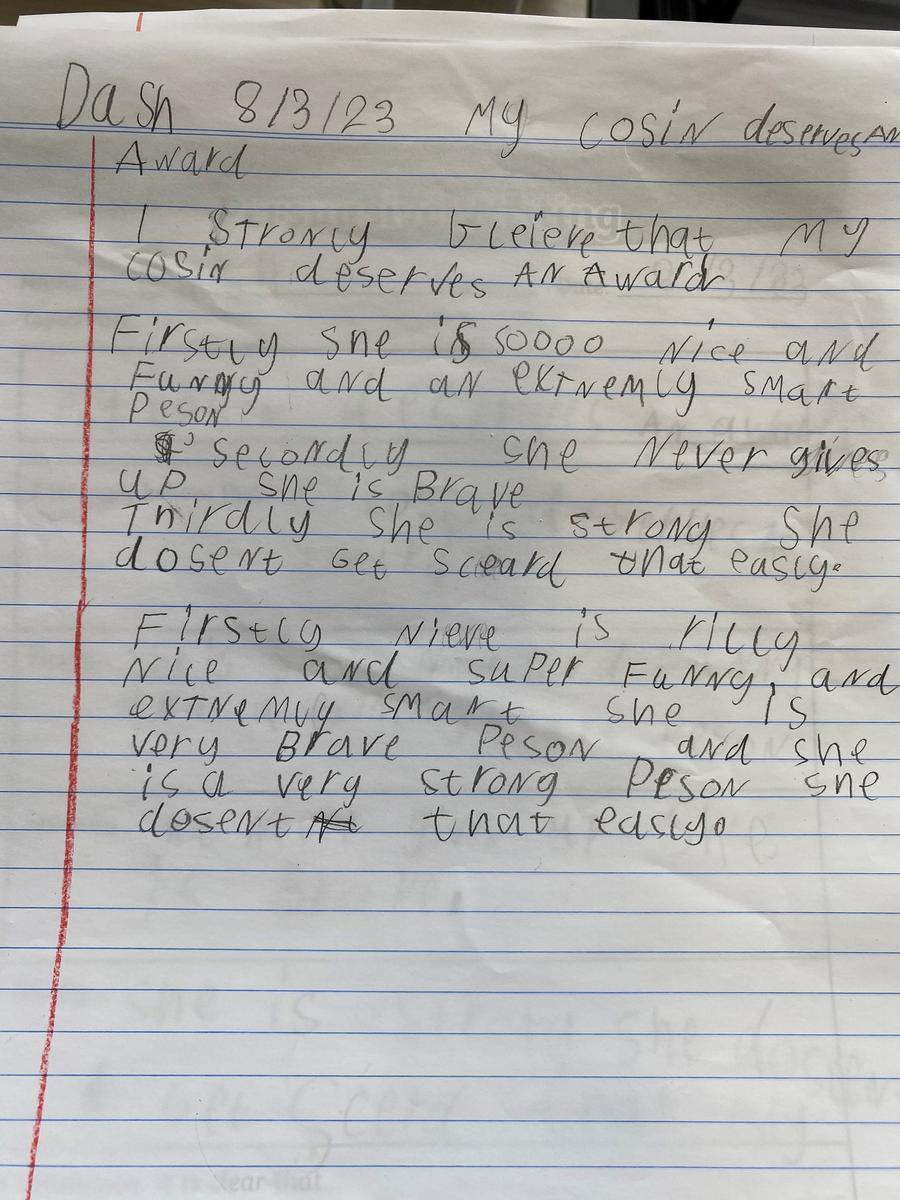 Dash 8/3/23 My cosin deserves AN
Award
I Strongly bleieve that My
cosin deserves AN Award
Firstly she is soooo Nice and
Funny and an extremly smart
Peson
secondly she Never gives
up she is Brave
Thirdly she is strong she
dosent Get sceard that easly.
Firstly Nieve is rilly
Nice and super Funny, and
extremly smart she is
very Brave Peson and she
is a very strong Peson she
dosent that easly.